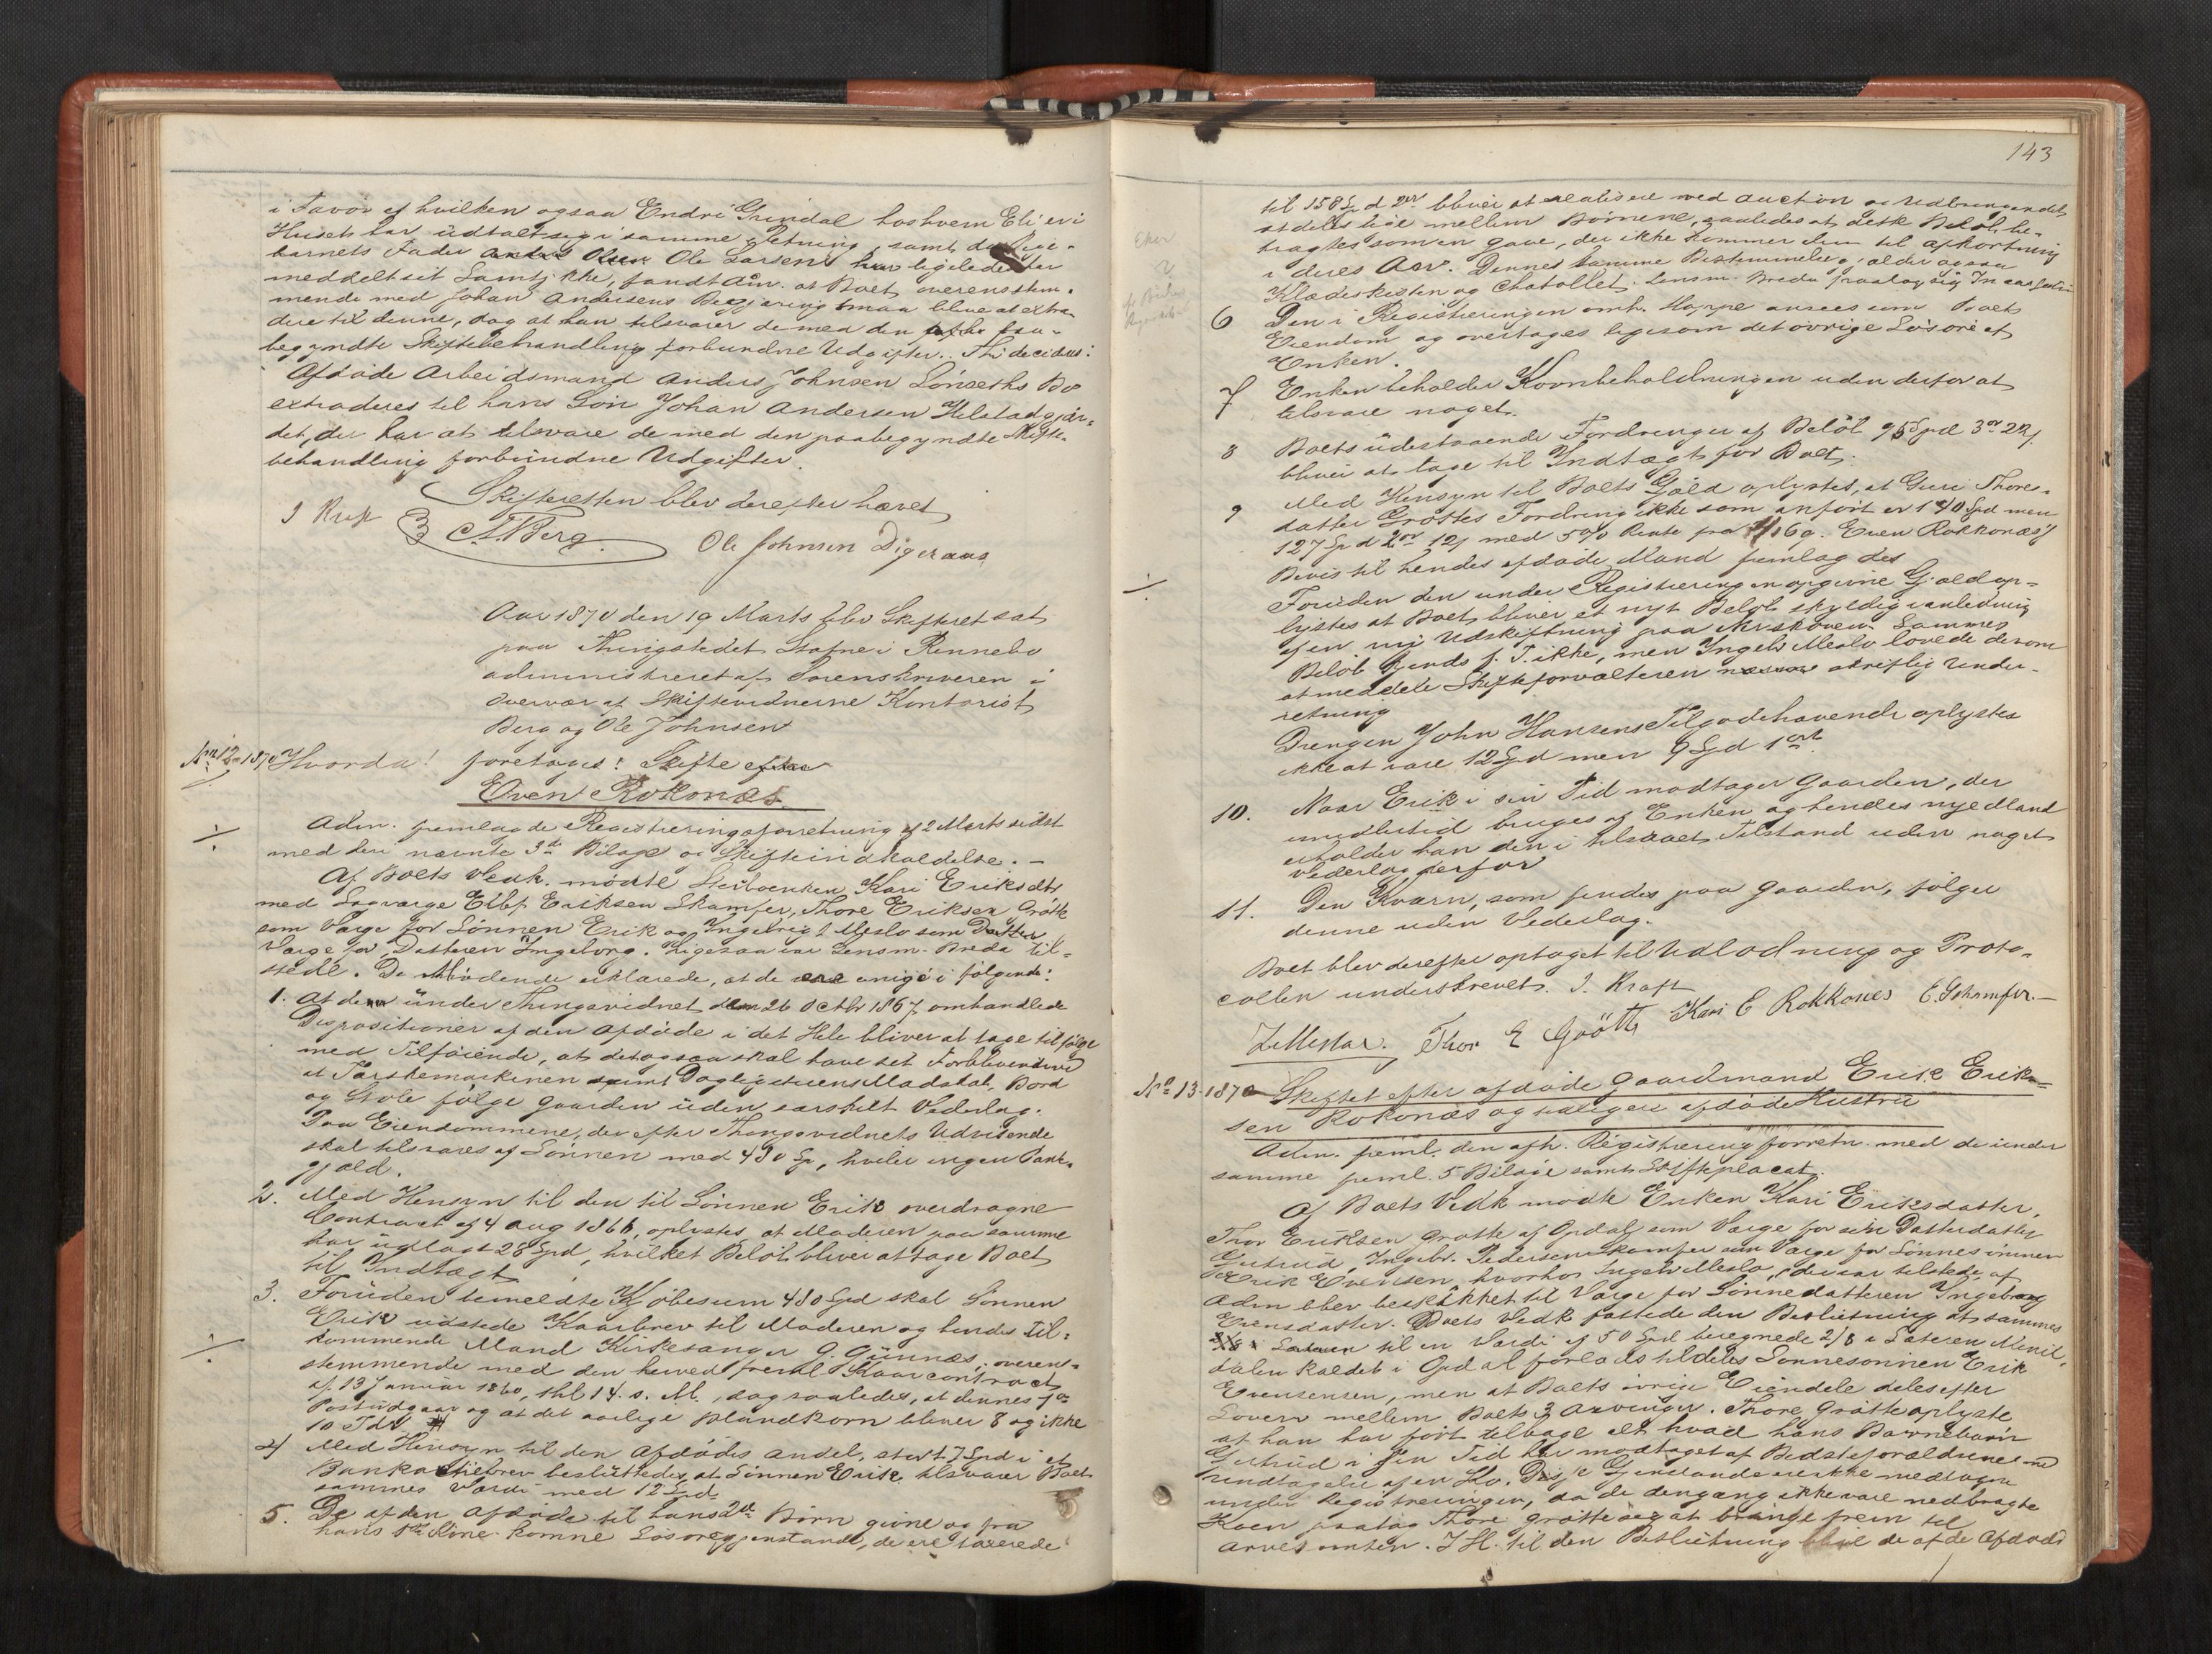 i Favör af hvilken ogsaa Endre Grindal hoshvem Eli er i
Huset har udtalt sig i samme Retning, samt
barnets Fader Ole Larsen ligeledes har
meddelt sit Samtykke, fandt Adm. at Boet overensstem-
mende med Johan Andersens Begjæring maa blive at extra-
dere til denne, dog at han tilsvarer de med den paa-
begyndte Skiftebehandling forbundne Udgifter. Thi decideres:
Afdøde Arbeidsmand Anders Johnsen Lönseths Bo
extraderes til hans Sön Johan Andersen Helstadgjær-
det, der har at tilsvare de med den paabegyndte Skifte-
behandling forbundne Udgifter.
Skifteretten blev derefter hævet
J Kraft
A. Berg. Ole Johnsen Digeraas
Aar 1870 den 19 Marts blev Skifteret sat
paa Thingstedet Stafne i Rennebo
administreret af Sorenskriveren i
Overvær af Skiftevidnerne Kontorist
Berg og Ole Johnsen
No 12-1870 Hvorda! foretoges: Skifte efter
Even Rokonæs.
Adm. fremlagde Registreringsforretning af 2 Marts sidst
med den nævnte 3de Bilage og Skifteindkaldelse. -
Af Boets Vedk. mödte Stervboenken Kari Eriksdtr
med Lagværge Ellef Eriksen Skamfer, Thore Eriksen Grötte
som Værge for Sønnen Erik og Ingebrigt Meslo som
Værge for Datteren Ingeborg. Ligesaa var Lensm. Brede til-
stede. De Mödende erklærede, at de ere enige i fölgende:
1. At de under Thingsvidnet den 26 Octbr 1867 omhandlede
Dispositioner af den Afdøde i det Hele bliver at tage tilfölge
med Tilföiende, at det ogsaa skal have sit Forblivende ved
at Tærskemaskinen samt Dagligstuens Madskab, Bord
og Stole følge Gaarden uden særskilt Vederlag.
Paa Eiendommene, der efter Thingsvidnets Udvisende
skal tilsvares af Sönnen med 480 Sp, hviler ingen Pante-
gjæld.
2. Med Hensyn til den til Sönnen Erik overdragne
Contract af 4 Aug 1866, oplystes at Moderen paa samme
har udlagt 28 Spd, hvilket Belöb bliver at tage Boet
til Indtægt
3. Foruden bemeldte Kjöbesum 480 Spd skal Sönnen
Erik udstede Kaarbrev til Moderen og hendes til-
kommende Mand Kirkesanger G. Gunnæs, overen-
stemmende med den herved freml. Kaarcontract
af 13 Januar 1860, thl. 14. s. M., dog saaledes, at dennes 7de
Post udgaar og at det aarlige Blandkorn bliver 8 og ikke
10 Tdr
4 Med Hensyn til den Afdødes Andel, stort 7 Spd i et
Bankactiebrev besluttedes, at Sønnen Erik tilsvarer Boet
sammes Værdi med 12 Spd
5. De af den Afdøde til hans 2de Börn givne og fra
hans 1ste Kone komne Lösöregjenstande, de ere taxerede
143
til 158 Spd 2 ort bliver at realisere ved Auction og Udbringendet
at deles lige mellem Börnene, saaledes at dette Belöb be-
tragtes som en Gave, der ikke kommer dem til Afkortning
i deres Arv. Denne samme Bestemmelse gjælder ogsaa
Klædeskisten og Chatollet. Lensm. Brede paatog sig Incassation
6 Den i Registreringen omh. Harpe ansees som Boets
Eiendom og overtages ligesom det övrige Lösöre af
Enken.
7 Enken beholder Kornbeholdningen uden derfor at
tilsvare noget.
8 Boets udestaaende Fordringer af Belöb 95 Spd 3 ort 22 s.
bliver at tage til Indtægt for Boet.
9 Med Hensyn til Boets Gjæld oplystes, at Guri Thores-
datter Grøttes Fordring ikke som anfört er 140 Spd men
127 Spd 2 ort 12 s med 5 % Rente fra 69. Even Rokkonæs's
Bevis til hendes afdøde Mand fremlagdes
Foruden den under Registreringen opgivne Gjæld op-
lystes at Boet bliver et nyt Beløb skyldig i anledning
af en ny Udskiftning paa Sammes
Beløb kjends f. T. ikke, men Ingebr Meslo lovede derom
at meddele Skifteforvalteren skriftlig Under-
retning
Drengen John Hansens Tilgodehavende oplystes
ikke at være 12 Spd men 9 Spd 1 ort.
10. Naar Erik i sin Tid modtager Gaarden, der
imidlertid bruges af Enken og hendes nye Mand
erholder han den i tilsaaet Tilstand uden noget
Vederlag derfor
11. Den Kværn, som findes paa Gaarden, følger
denne uden Vederlag.
Boet blev derefter optaget til Udlodning og Proto-
collen underskrevet. J. Kraft
Kari E Rokkones E. Schamfer. -
Thor E Grötte
No 13-1870 Skiftet efter afdøde Gaardmand Erik Erik-
sen Rokonæs og tidligere afdøde Hustru
Adm. freml. den afh. Registreringsforretn. med de under
samme freml. 5 Bilage samt Skifteplacat.
Af Boets Vedk mödte Enken Kari Eriksdatter,
Thor Eriksen Grøtte af Opdal som Værge for sin Datterdatter
Gjertrud, Ingebr. Pedersen Skamfer som Værge for Sönnesönnen
Erik Evensen, hvorhos Ingebr Meslo, der var tilstede, af
Adm blev beskikket til Værge for Sönnedatteren Ingeborg
Evensdatter. Boets Vedk fattede den Beslutning at sammes
til en Værdi af 50 Spd beregnede 2/8 i Sæteren
dalen kaldet i Opdal forlods tildeles Sønnesønnen Erik
Evensen, men at Boets övrige Eiendele deles efter
Loven mellem Boets 3 Arvinger. Thore Grøtte oplyste
at han har fört tilbage alt hvad hans Barnebarn
Gjertrud i sin Tid har modtaget af Bedsteforældrene med
Undtagelse af en Ko. Disse Gjenstande er ikke medtagen
under Registreringen, da de dengang ikke vare nedbragte
Koen paatog Thore Grøtte sig at bringe frem til
Arvetomten. I H. til den Beslutning blive de af de Afdøde